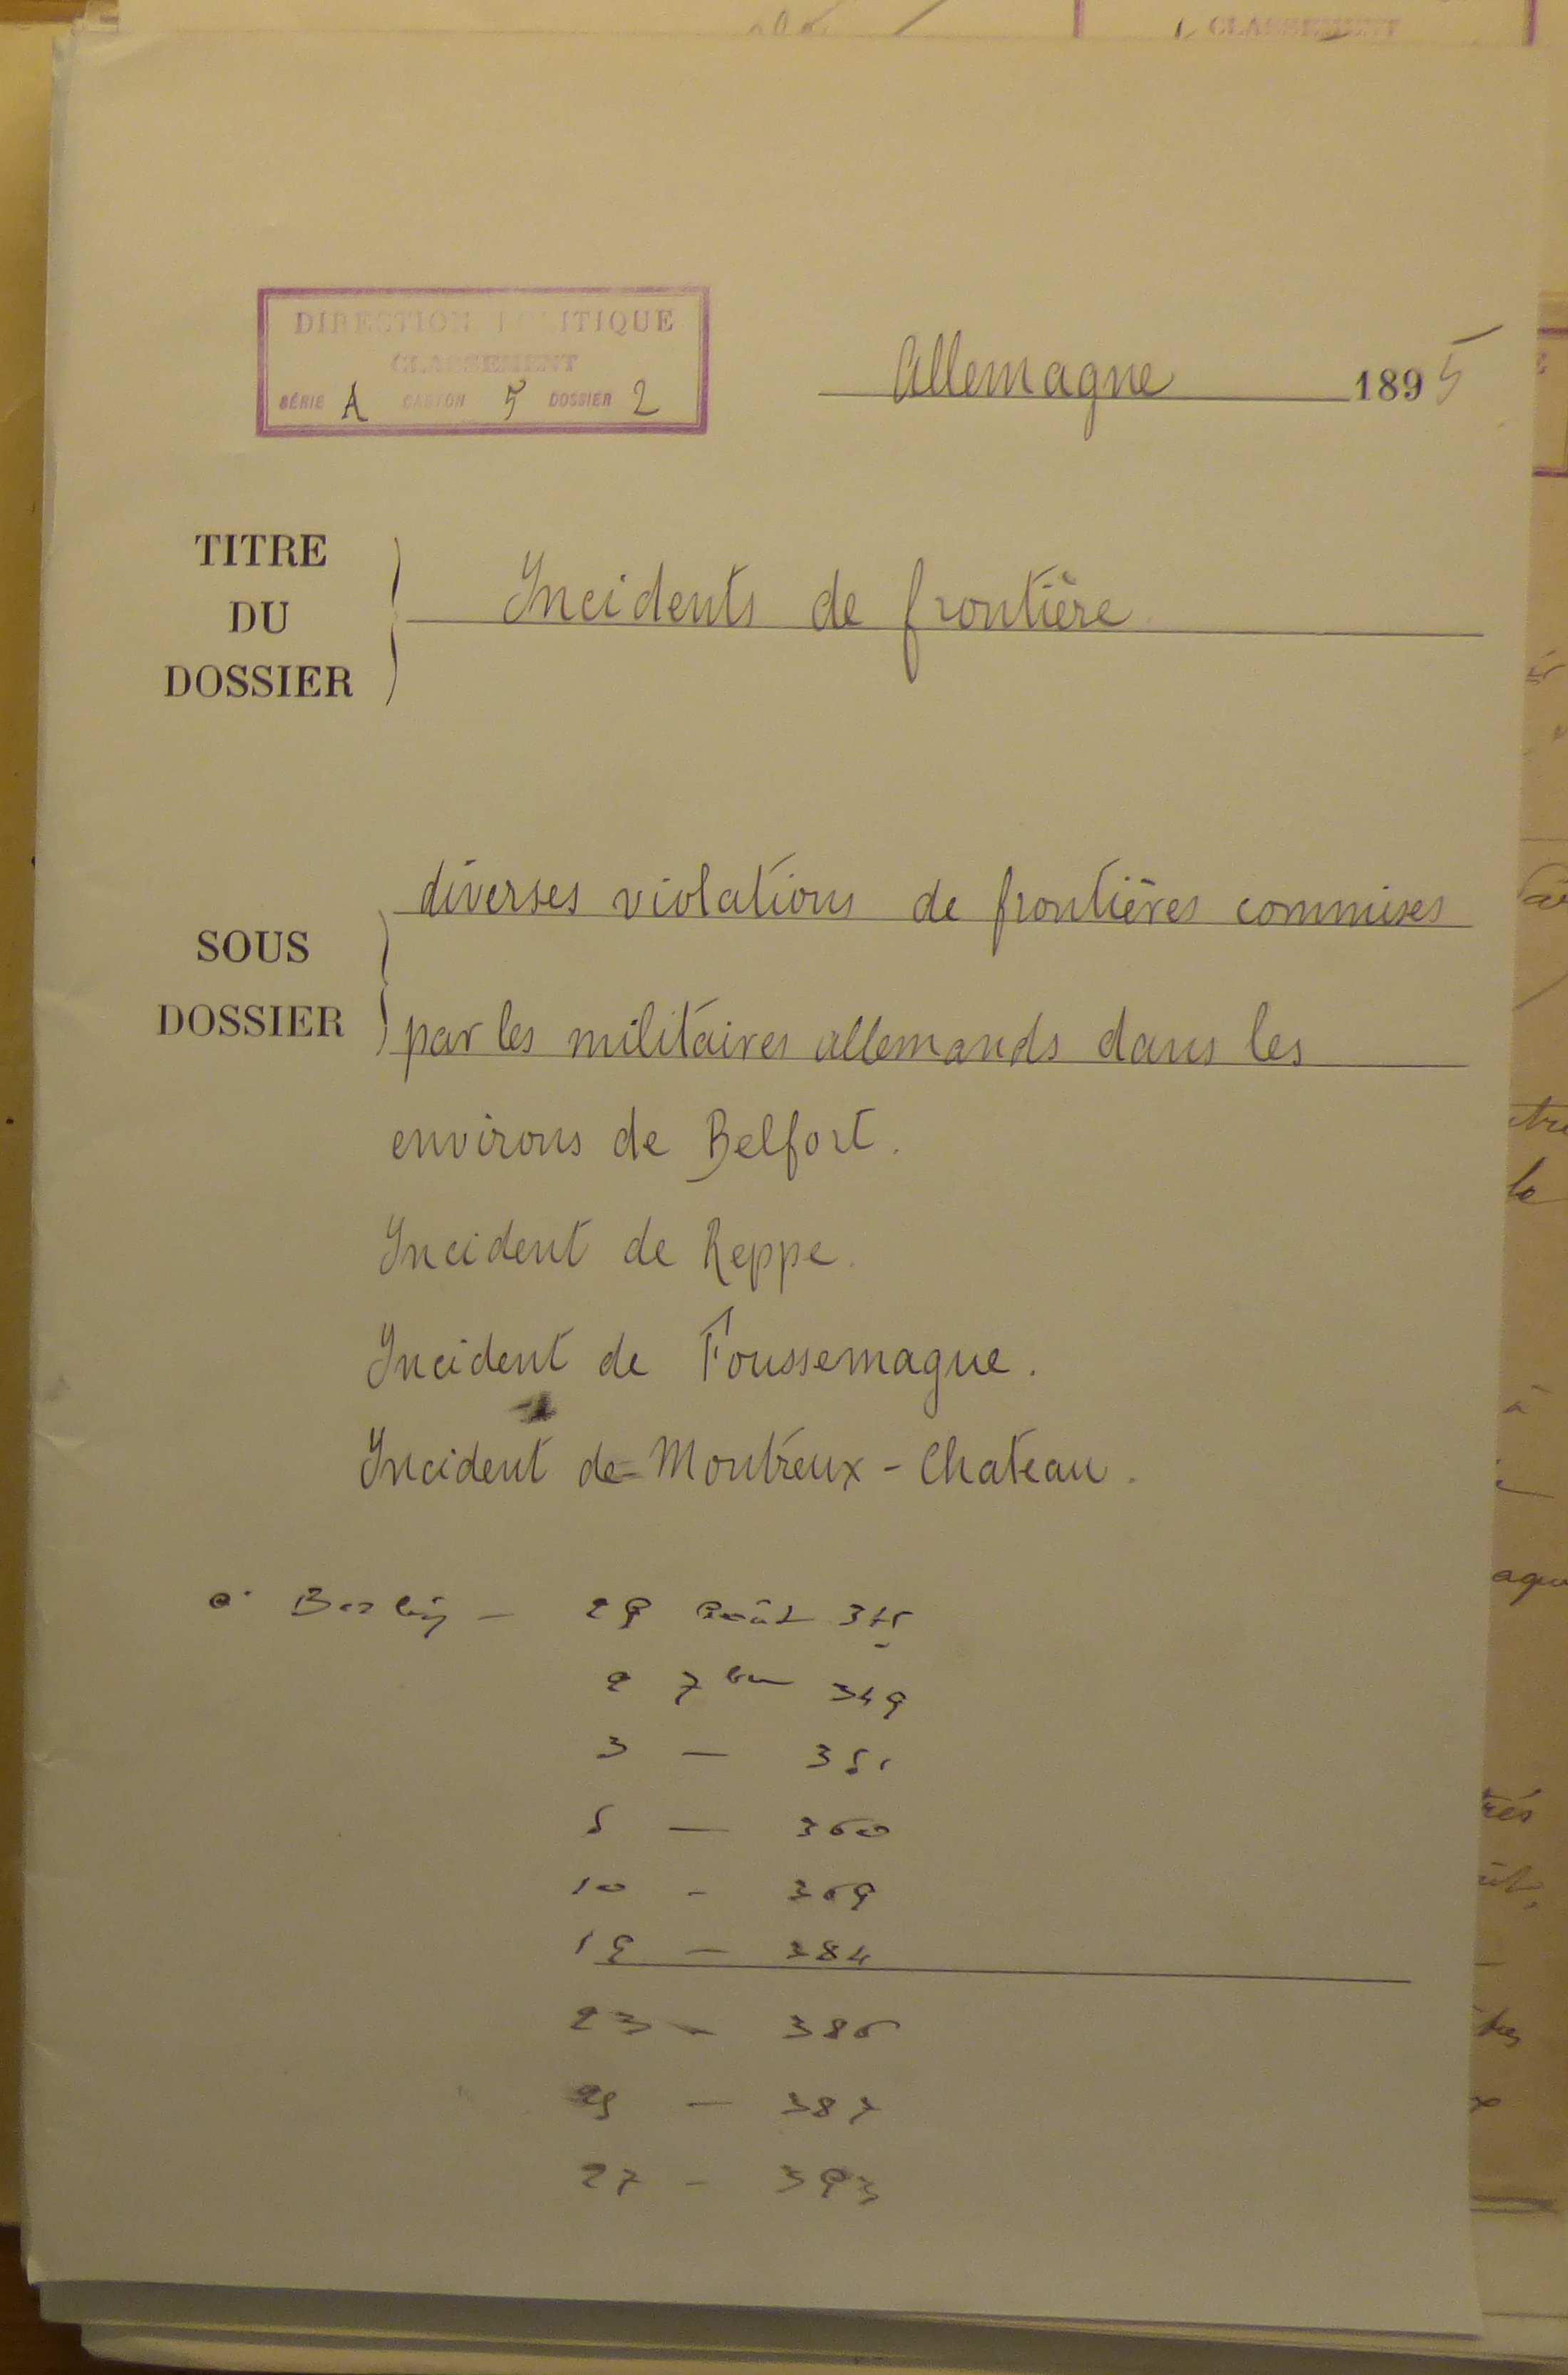 DIRECTION POLITIQUE
CLASSEMENT
SÉRIE A CARTON 5 DOSSIER 2
Allemagne 1895
TITRE
DU
DOSSIER
Incidents de frontière
SOUS
DOSSIER
diverses violations de frontières commises
par les militaires allemands dans les
environs de Belfort.
Incident de Reppe.
Incident de Foussemagne.
Incident de Montreux-Chateau.
Berlin - 29 août
2 7bre 349
3 — 351
5 — 360
10 - 369
19 — 384
23 - 386
25 — 387
27 - 393
CLASSEMENT